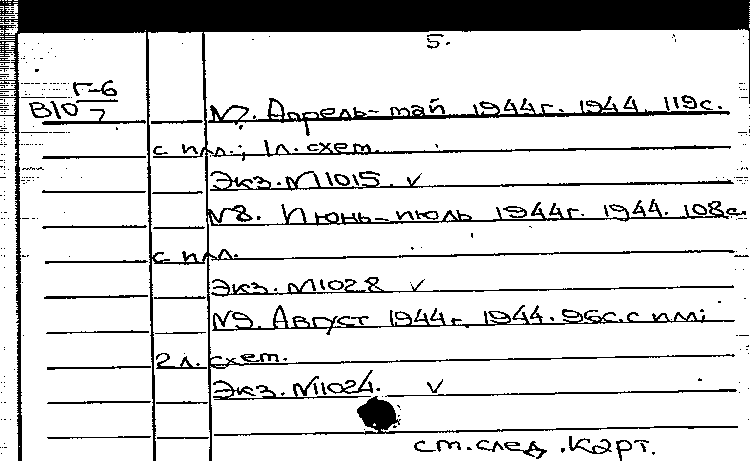 5.
Г-6
В10 7
№7. Апрель-май 1944г. 1944. 119с.
с илл.; 1л. схем.
Экз. №11015. v
№8. Июнь-июль 1944г. 1944. 108с.
с илл.
Экз. №11028 v
№9. Август 1944г. 1944. 96с. с илл;
2 л. схем.
Экз. №11024. v
см. след. карт.